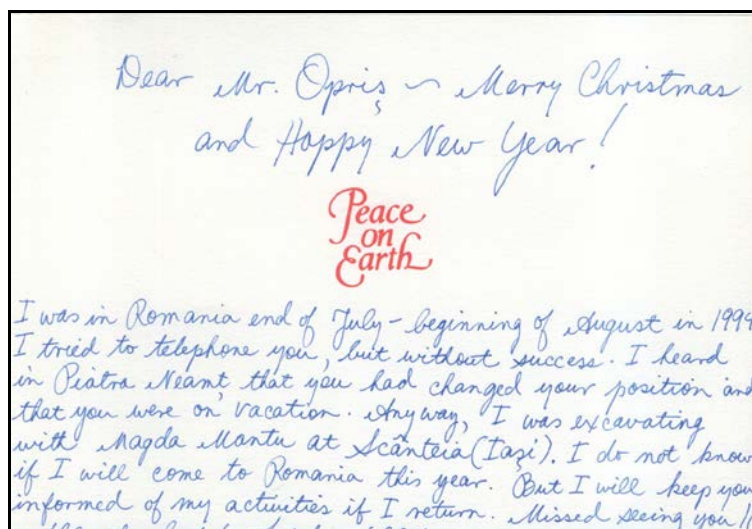 Dear Mr. Opriş ~ Merry Christmas
and Happy New Year!
Peace
on
Earth
I was in Romania end of July - beginning of August in 1999
I tried to telephone you, but without success. I heard
in Piatra Neamţ that you had changed your position and
that you were on vacation. Anyway, I was excavating
with Magda Mantu at Scânteia (Iaşi). I do not know
if I will come to Romania this year. But I will keep you
informed of my activities if I return. Missed seeing you!